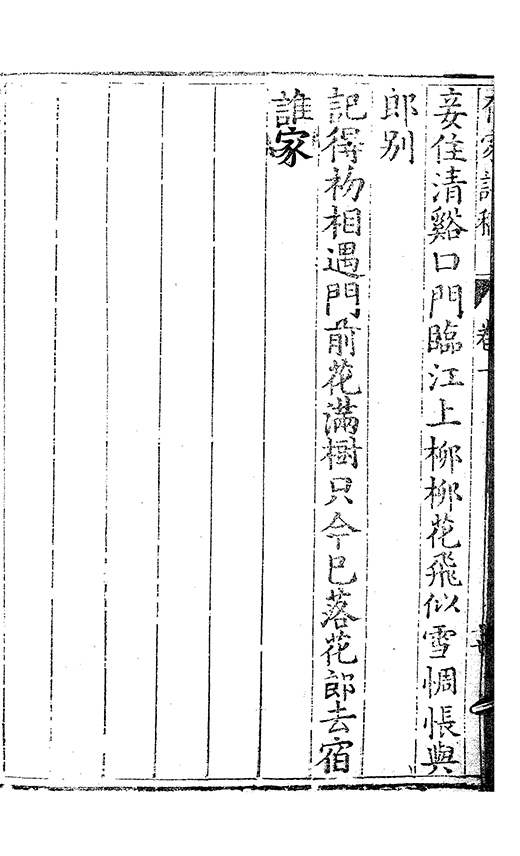 家詩稿　卷一
妾住清谿口門臨江上柳柳花飛似雪惆悵與
郎別
記得初相遇門前花滿樹只今已落花郎去宿
誰家